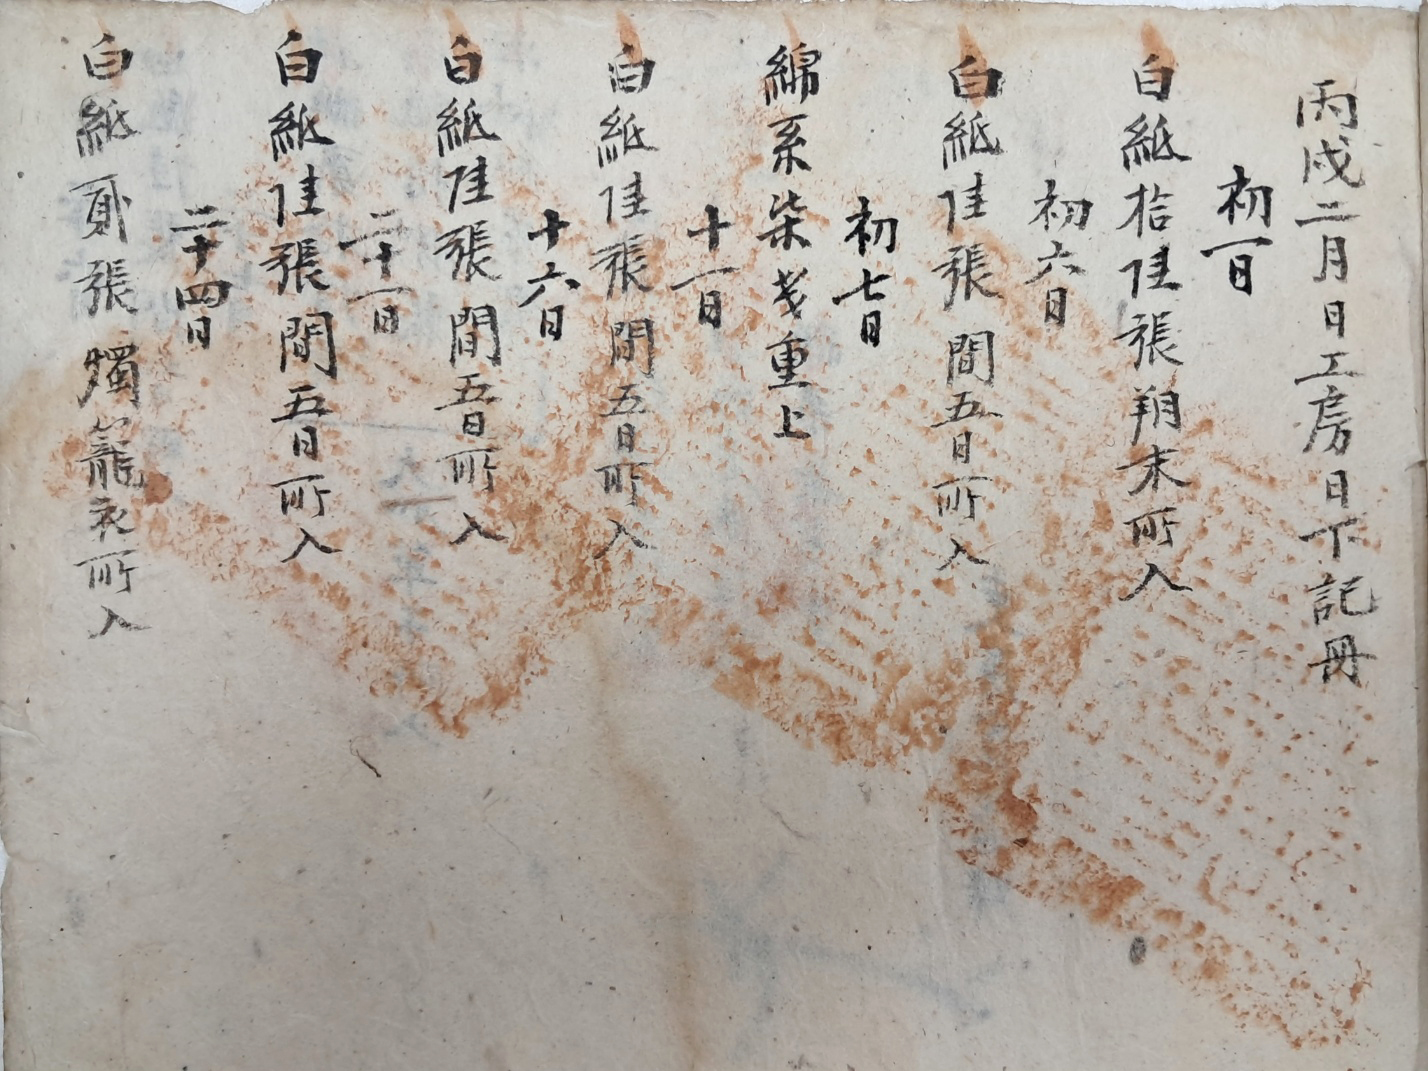 丙戌二月日工房日下記册
初一日
白紙拾陸張朔末所入
初六日
白紙陸張間五日所入
初七日
綿糸柒戔重上
十一日
白紙陸張間五日所入
十六日
白紙陸張間五日所入
二十一日
白紙陸張間五日所入
二十四日
白紙貳張燭籠衣所入